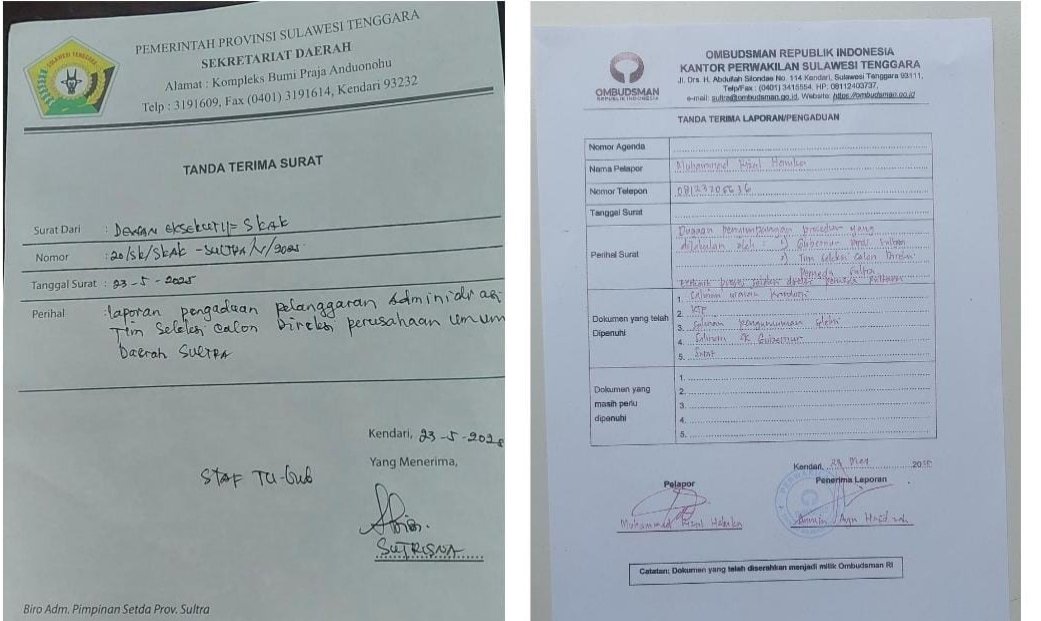 SULAWESI TENGGARA
PEMERINTAH PROVINSI SULAWESI TENGGARA
SEKRETARIAT DAERAH
Alamat : Kompleks Bumi Praja Anduonohu
Telp : 3191609, Fax (0401) 3191614, Kendari 93232
TANDA TERIMA SURAT
Surat Dari : DEWAN EKSEKUTIF SKAK
Nomor : 20/SK/SKAK-SULTRA/V/2025
Tanggal Surat : 23-5-2025
Perihal : laporan pengaduan pelanggaran Administrasi
Tim Seleksi calon Direksi perusahaan umum
Daerah SULTRA
Kendari, 23-5-2025
Yang Menerima,
STAF TU-Gub
SUTRISNA
Biro Adm. Pimpinan Setda Prov. Sultra
OMBUDSMAN
REPUBLIK INDONESIA
OMBUDSMAN REPUBLIK INDONESIA
KANTOR PERWAKILAN SULAWESI TENGGARA
Jl. Drs. H. Abdullah Silondae No. 114 Kendari, Sulawesi Tenggara 93111,
Telp/Fax : (0401) 3415554, HP: 08112403737,
e-mail: sultra@ombudsman.go.id, Website: https://ombudsman.go.id
TANDA TERIMA LAPORAN/PENGADUAN
Nomor Agenda
Nama Pelapor Muhammad
Nomor Telepon
Tanggal Surat
Perihal Surat Dugaan penyimpangan prosedur yang
dilakukan oleh : 1) Gubernur
2) Tim Seleksi Calon Direksi
Perumda Sultra
Dokumen yang telah Dipenuhi
1.
2. KTP
3. Salinan pengumuman seleksi
4. Salinan SK Gubernur
5. Surat
Dokumen yang masih perlu dipenuhi
1.
2.
3.
4.
5.
Kendari, 2025
Pelapor
Penerima Laporan
Muhammad
Catatan: Dokumen yang telah diserahkan menjadi milik Ombudsman RI